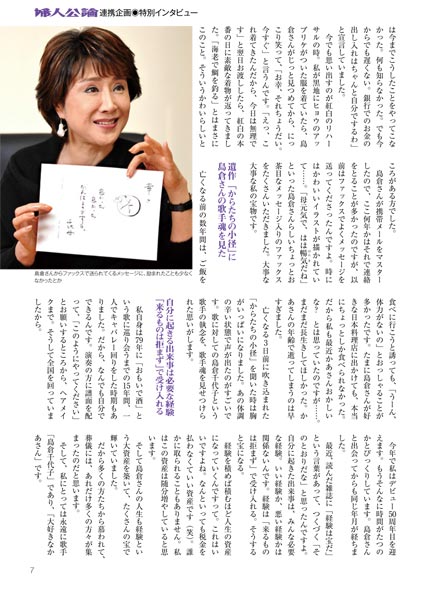 婦人公論 連携企画●特別インタビュー
は今までこうしたことをやってこな
かった。何も知らなかった。でも今
からでも遅くない。銀行でのお金の
出し入れはちゃんと自分でするわ」
と宣言していました。
今でも思い出すのが紅白のリハー
サルの時。私が黒地にヒョウのアッ
プリケがついた服を着ていたら、島
倉さんがじっと見つめてから、にっ
こり笑って、「お幸、それちょうだい、
今すぐ」と言うんです。「えっ、こ
れ着てきたんだから、今日は無理で
す」と翌日お渡ししたら、紅白の本
番の日に素敵な着物が返ってきまし
た。「海老で鯛を釣る」とはまさに
このこと。そういうかわいらしいと
ころがある方でした。
島倉さんが携帯メールをマスター
したので、ここ何年かはそれで連絡
をとることが多かったのですが、以
前はファックスでよくメッセージを
送ってくださったんですよ。時に
はかわいいイラストが描かれてい
て……。「母元気で、はは暢気だね」
といった島倉さんらしいちょっとお
茶目なメッセージ入りのファックス
をたくさんいただきました。大事な
大事な私の宝物です。
遺作「からたちの小径」に
島倉さんの歌手魂を見た
亡くなる前の数年間は、「ご飯を
島倉さんからファックスで送られてくるメッセージに、励まされたことも少なく
なかったとか
食べに行こうと誘っても、「うーん、
体力がないの」とおっしゃることが
多かったです。たまに島倉さんが好
きな日本料理店に出かけても、本当
にちょっとしか食べられなかった。
だから私も最近かあさんおかしい
な？とは思っていたのですが……。
まだまだ長生きしてほしかった。か
あさんの年齢で逝ってしまうのは早
すぎました。
亡くなる3日前に吹き込まれた
「からたちの小径」を聞いた時は胸
がいっぱいになりました。あの体調
の辛い状態で声が出たのがすごいで
す。歌に対しての島倉千代子という
歌手の執念を、歌手魂を見せつけら
れた思いがします。
自分に起きる出来事は必要な経験
「来るものは拒まず」で受け入れる
私自身は79年に「おもいで酒」と
いう歌に巡り合うまでの15年間、一
人でキャバレー回りをした時期もあ
りました。だから、なんでも自分で
できるんです。演奏の方に譜面を配
って、「このようにやってください」
とお願いするところから、ヘアメイ
クまで。そうして全国を回っていま
したから。
今年で私はデビュー50周年目を迎
えます。もうそんなに時間がたつの
かとびっくりしています。島倉さん
と出会ってからも同じ年月が経ちま
した。
最近、読んだ雑誌に「経験は宝だ」
という言葉があって、つくづく「そ
のとおりだな」と思ったんですよ。
自分に起きた出来事は、みんな必要
な経験。いい経験か、悪い経験かは
関係ない。です。経験は「来るもの
は拒まず」で受け入れる。そうする
と宝になる。
経験を積めば積むほど人生の資産
になっていくんですって。これはい
いですよね。なんといっても税金を
払わなくていい資産です（笑）。誰
かに取られることもありません。私
はこの資産は随分増やしていると思
います。
そして島倉さんの人生も経験とい
う大資産を築いて、たくさんの宝で
輝いていました。
だから多くの方たちから慕われて、
葬儀には、あれだけ多くの方々が集
まったのだと思います。
そして、私にとっては永遠に歌手
「島倉千代子」であり、「大好きなか
あさん」です。
7